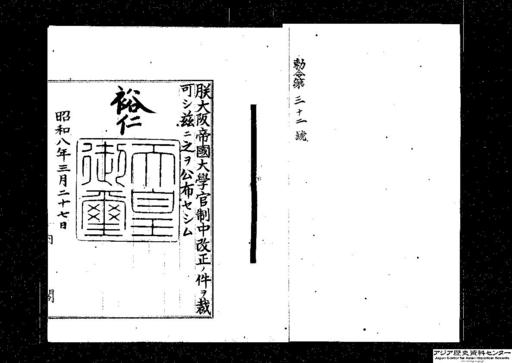 勅令第三十二號
朕大阪帝國大學官制中改正ノ件ヲ裁
可シ茲ニ之ヲ公布セシム
裕仁
天皇御璽
昭和八年三月二十七日
内閣
アジア歴史資料センター
Japan Center for Asian Historical Records